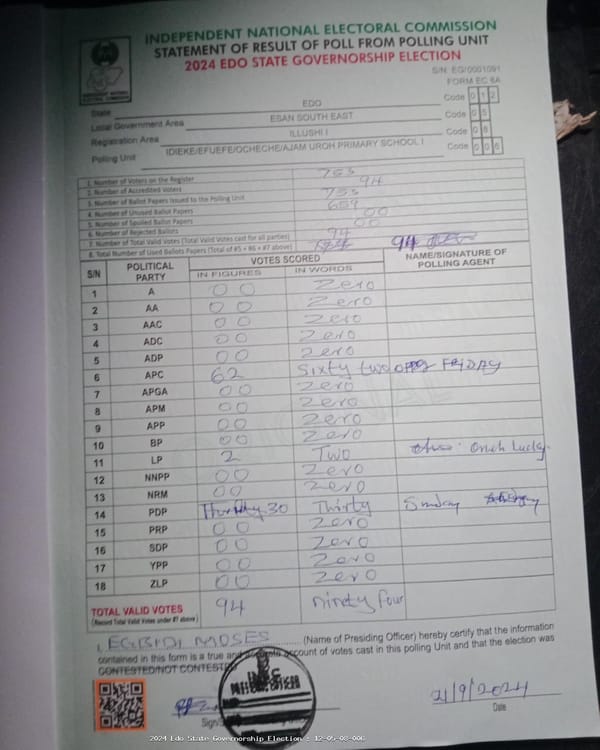 INDEPENDENT NATIONAL ELECTORAL COMMISSION
STATEMENT OF RESULT OF POLL FROM POLLING UNIT
2024 EDO STATE GOVERNORSHIP ELECTION
S/N: EG/0001091
FORM EC 8A
State EDO Code 012
Local Government Area ESAN SOUTH EAST Code 05
Registration Area ILLUSHI I Code 08
Polling Unit IDIEKE/EFUEFE/OCHECHE/AJAM UROH PRIMARY SCHOOL I Code 006
1. Number of Voters on the Register 753
2. Number of Accredited Voters 94
3. Number of Ballot Papers Issued to the Polling Unit 753
4. Number of Unused Ballot Papers 659
5. Number of Spoiled Ballot Papers 00
6. Number of Rejected Ballots 00
7. Number of Total Valid Votes (Total Valid Votes cast for all parties) 94
8. Total Number of Used Ballots Papers (Total of #5 + #6 + #7 above) 94
S/N POLITICAL PARTY VOTES SCORED NAME/SIGNATURE OF POLLING AGENT
IN FIGURES IN WORDS
1 A 00 Zero
2 AA 00 Zero
3 AAC 00 Zero
4 ADC 00 Zero
5 ADP 00 Zero
6 APC 62 Sixty two FRIDAY
7 APGA 00 Zero
8 APM 00 Zero
9 APP 00 Zero
10 BP 00 Zero
11 LP 2 Two Lucky
12 NNPP 00 Zero
13 NRM 00 Zero
14 PDP 30 Thirty Sunday
15 PRP 00 Zero
16 SDP 00 Zero
17 YPP 00 Zero
18 ZLP 00 Zero
TOTAL VALID VOTES 94 Ninety four
(Record Total Valid Votes under #7 above)
I, EGBIDI MOSES (Name of Presiding Officer) hereby certify that the information
contained in this form is a true and accurate account of votes cast in this polling Unit and that the election was
CONTESTED/NOT CONTESTED
21/9/2024
Date
2024 Edo State Governorship Election : 12-05-08-006